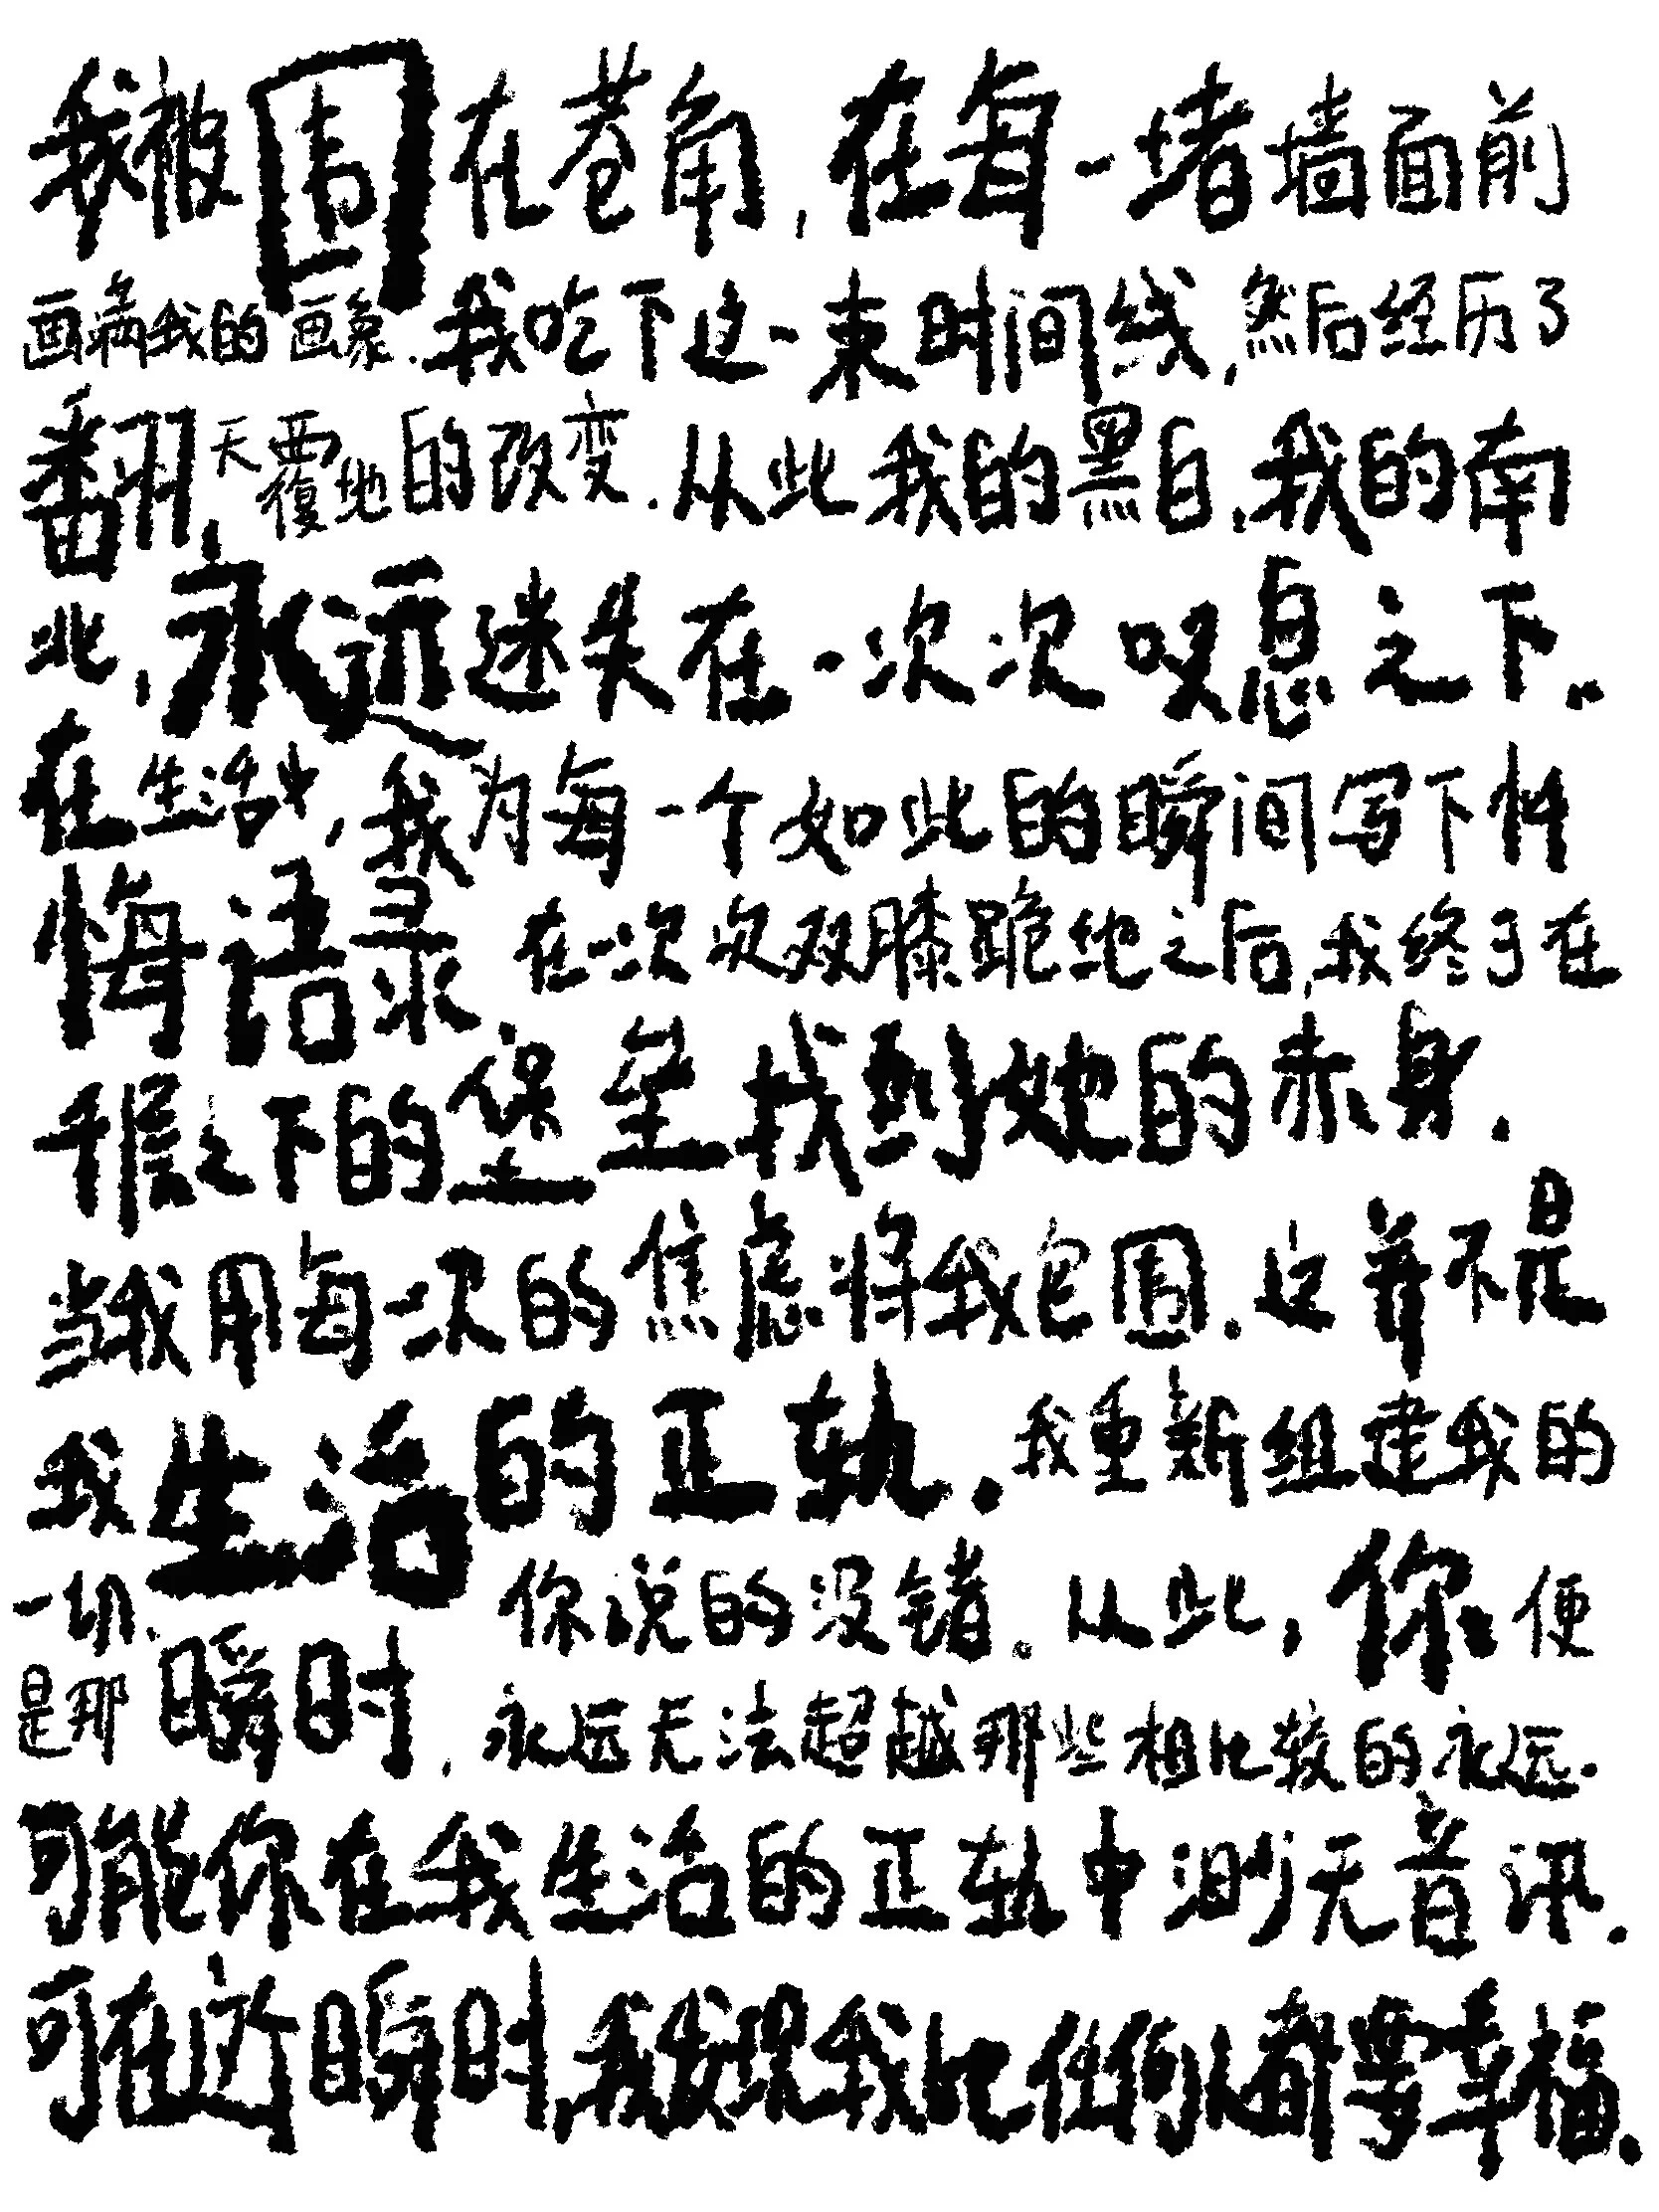 我被围在巷角，在每一堵墙面前
画满我的画象.我吃下这一束时间线,然后经历了
翻天覆地的改变.从此我的黑白,我的南
北,永远迷失在一次次叹息之下.
在生活中,我为每一个如此的瞬间写下忏
悔语录.在一次次双膝跪地之后,我终于在
千般之下的堡垒找到她的赤身.
当我用每一次的焦虑将我包围.这并不是
我生活的正轨.我重新组建我的
一切. 你说的没错。从此,你便
是那瞬时.永远无法超越那些相比较的永远.
可能你在我生活的正轨中渺无音讯.
可在这瞬时,我发现我比任何人都要幸福.